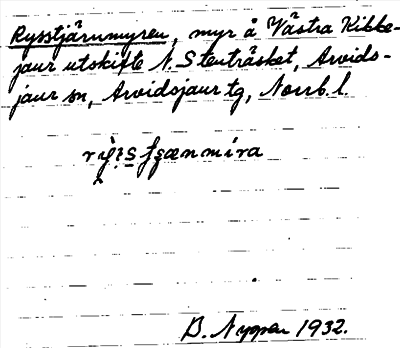 Rysstjärnmyren, myr å Västra Kikke-
jaur utskifte N. Stenträsket, Arvids-
jaur sn, Arvidsjaur tg, Norrb. l.
B. Nyman 1932.